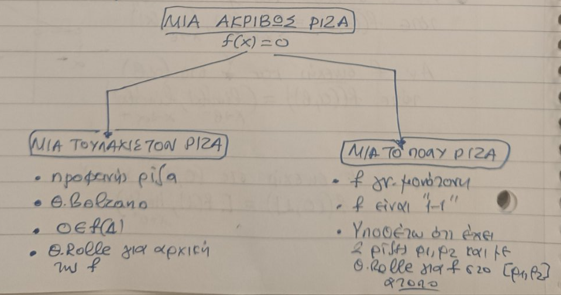 ΜΙΑ ΑΚΡΙΒΩΣ ΡΙΖΑ
f(x)=0
ΜΙΑ ΤΟΥΛΑΧΙΣΤΟΝ ΡΙΖΑ
• προφανής ρίζα
• Θ.Bolzano
• 0∈f(Δ)
• Θ.Rolle για αρχική
της f
ΜΙΑ ΤΟ ΠΟΛΥ ΡΙΖΑ
• f γν. μονότονη
• f είναι "1-1"
• Υποθέτω ότι έχει
2 ρίζες ρ1,ρ2 και με
Θ.Rolle για f στο [ρ1,ρ2]
άτοπο